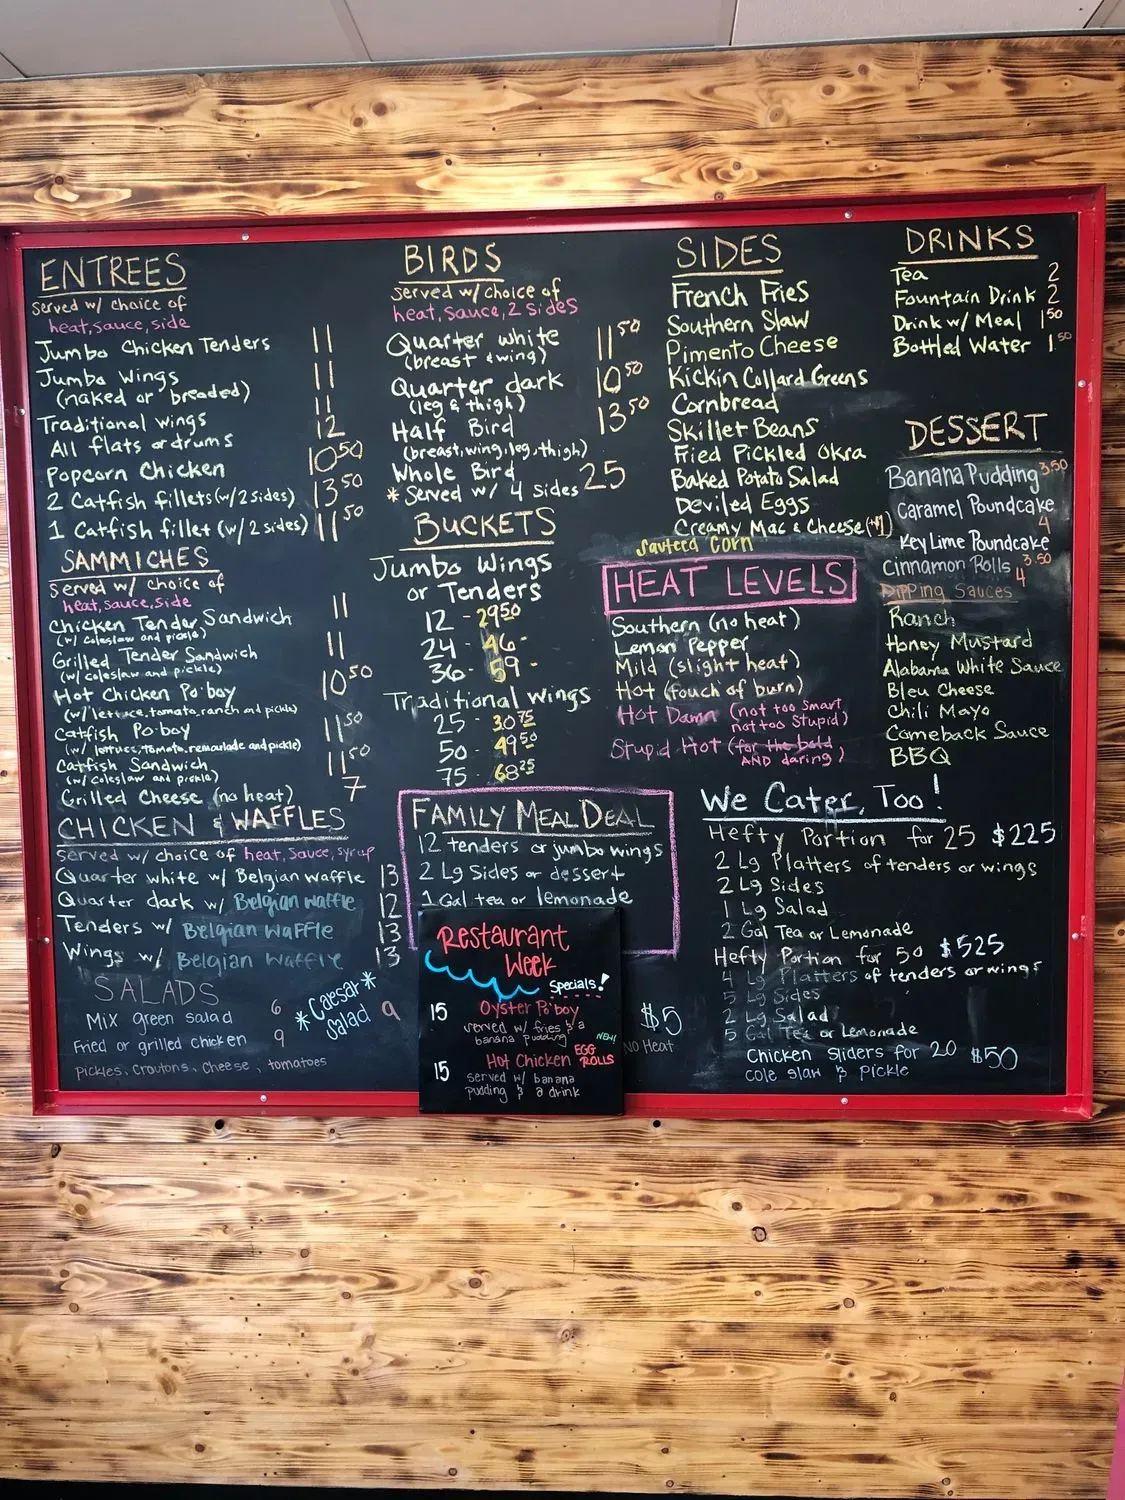 ENTREES
served w/ choice of
heat, sauce, side
Jumbo Chicken Tenders 11
Jumbo Wings 11
(naked or breaded)
Traditional wings 11
All flats or drums 12
Popcorn Chicken 10 50
2 Catfish fillets (w/ 2 sides) 13 50
1 Catfish fillet (w/ 2 sides) 11 50
SAMMICHES
served w/ choice of
heat, sauce, side
Chicken Tender Sandwich 11
(w/ coleslaw and pickle)
Grilled Tender Sandwich 11
(w/ coleslaw and pickle)
Hot Chicken Po·boy 10 50
(w/ lettuce, tomato, ranch and pickle)
Catfish Po·boy 11 50
(w/ lettuce, tomato, remoulade and pickle)
Catfish Sandwich 11 50
(w/ coleslaw and pickle)
Grilled Cheese (no heat) 7
CHICKEN & WAFFLES
served w/ choice of heat, sauce, syrup
Quarter white w/ Belgian waffle 13
Quarter dark w/ Belgian waffle 12
Tenders w/ Belgian waffle 13
Wings w/ Belgian waffle 13
SALADS
Mix green salad 6
Fried or grilled chicken 9
pickles, croutons, cheese, tomatoes
*Caesar*
Salad 9
BIRDS
served w/ choice of
heat, sauce, 2 sides
Quarter white 11 50
(breast & wing)
Quarter dark 10 50
(leg & thigh)
Half Bird 13 50
(breast, wing, leg, thigh)
Whole Bird 25
* Served w/ 4 sides
BUCKETS
Jumbo Wings
or Tenders
12 - 29 50
24 - 46 -
36 - 59 -
Traditional wings
25 - 30 75
50 - 49 50
75 - 68 25
FAMILY MEAL DEAL
12 tenders or jumbo wings
2 Lg Sides or dessert
1 Gal tea or lemonade
Restaurant
Week
Specials!
15 Oyster Po'boy
served w/ fries & a
banana pudding
15 Hot Chicken EGG ROLLS
NEW!
served w/ banana
pudding & a drink
$5
No Heat
SIDES
French Fries
Southern Slaw
Pimento Cheese
Kickin Collard Greens
Cornbread
Skillet Beans
Fried Pickled Okra
Baked Potato Salad
Deviled Eggs
Creamy Mac & Cheese (+1)
Sauteed Corn
HEAT LEVELS
Southern (no heat)
Lemon Pepper
Mild (slight heat)
Hot (touch of burn)
Hot Damn (not too smart
not too stupid)
Stupid Hot (for the bold
AND daring)
DRINKS
Tea 2
Fountain Drink 2
Drink w/ Meal 1 50
Bottled Water 1 50
DESSERT
Banana Pudding 3.50
Caramel Poundcake 4
Key Lime Poundcake
Cinnamon Rolls 3.50
4
Dipping Sauces
Ranch
Honey Mustard
Alabama White Sauce
Bleu Cheese
Chili Mayo
Comeback Sauce
BBQ
We Cater, Too!
Hefty Portion for 25 $225
2 Lg Platters of tenders or wings
2 Lg Sides
1 Lg Salad
2 Gal Tea or Lemonade
Hefty Portion for 50 $525
4 Lg Platters of tenders or wings
5 Lg Sides
2 Lg Salad
5 Gal Tea or Lemonade
Chicken Sliders for 20 $50
cole slaw & pickle